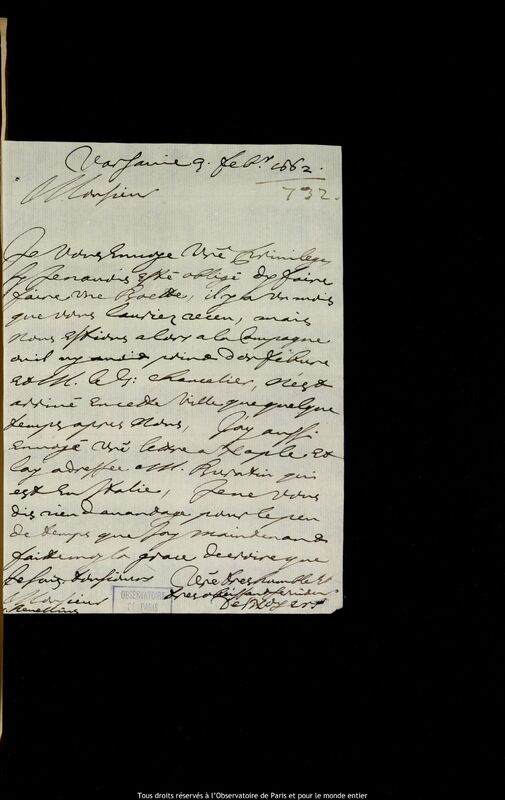 Varsavie 9. feb.r 1662.
732.
Monsieur
Je vous Envoye vre Privilege
sy Je navois esté obligé dy faire
faire une Boette, il y a un mois
que vous lauriez receu, mais
nous estions alors a la Campagne
ou il ny avoit point dorfebure
et M. le G. chancelier, nest
arrivé En ceste ville que quelque
temps apres nous, J'ay aussi
Envoyé vre lettre a Naple et
lay adressée a M. Buratin qui
est En Italie, Je ne vous
dis rien davantage pour le peu
de temps que J'ay maintenant
faittemoy la grace de croire que
Je suis Monsieur
Vre tres humble et
tres obeissant serviteur
Des Noyers
Monsieur
Hevellius
OBSERVATOIRE
DE PARIS
Tous droits réservés à l'Observatoire de Paris et pour le monde entier